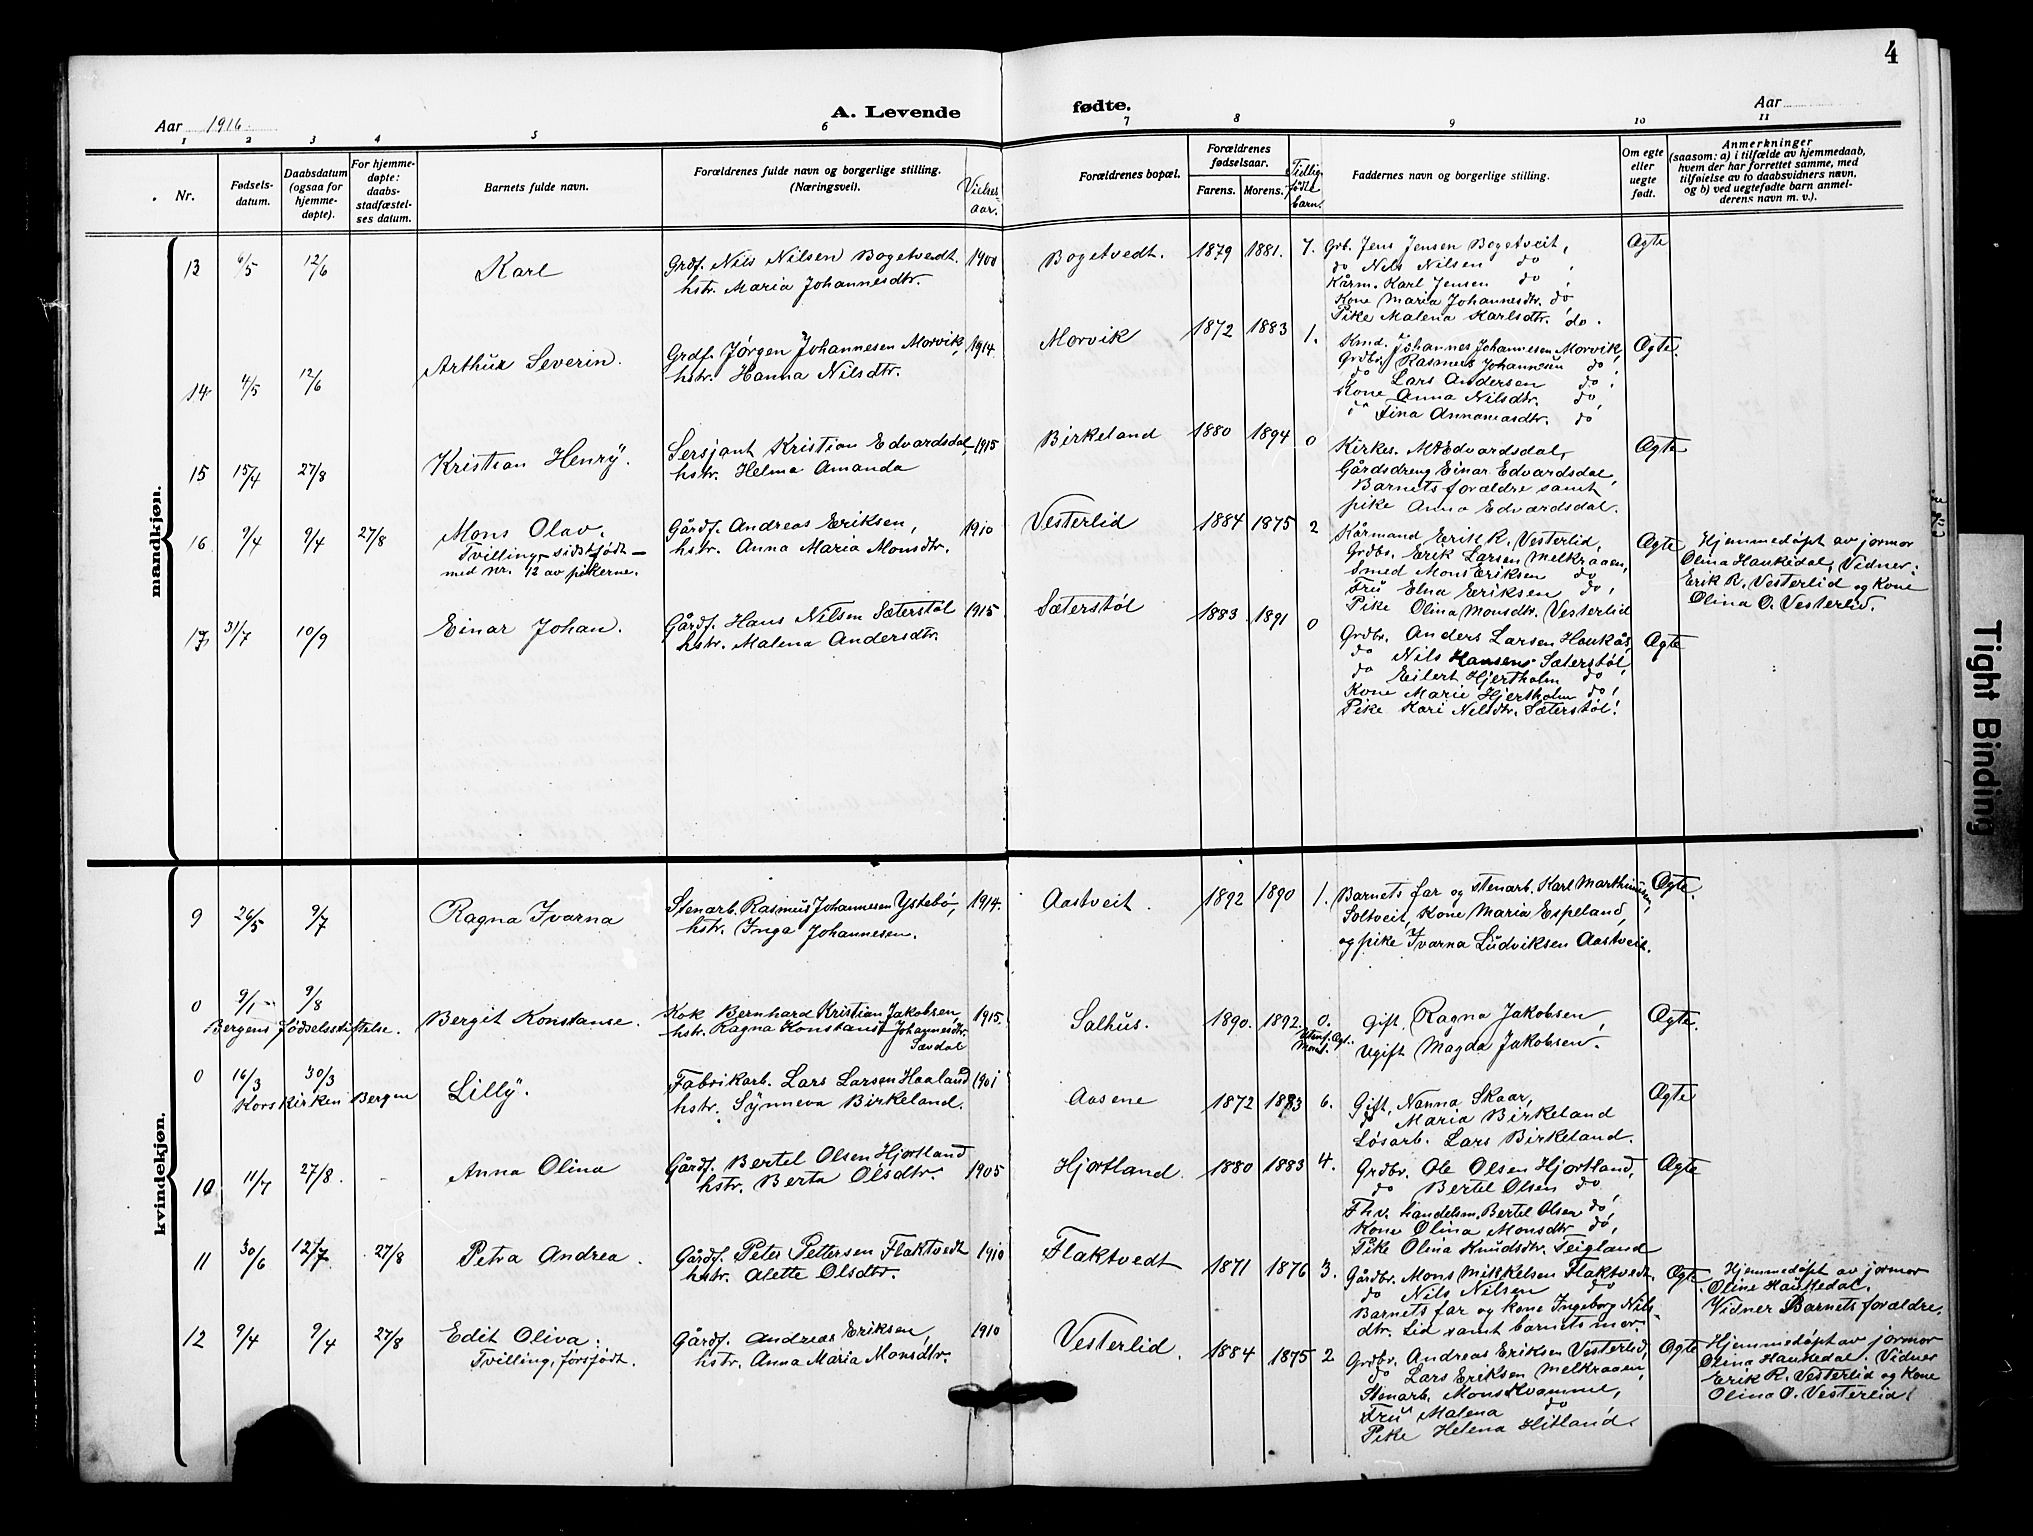 4
Aar 1916
A. Levende
fødte.
Aar
1 2 3 4 5 6 7 8 9 10 11
Nr.
Fødsels-
datum.
Daabsdatum
(ogsaa for
hjemme-
døpte).
For hjemme-
døpte:
daabs-
stadfæstel-
ses datum.
Barnets fulde navn.
Forældrenes fulde navn og borgerlige stilling.
(Næringsvei).
Vielses
aar.
Forældrenes bopæl.
Forældrenes
fødselsaar.
Farens. Morens.
Tidlig.
fødte
barn.
Faddernes navn og borgerlige stilling.
Om egte
eller
uegte
født.
Anmerkninger
(saasom: a) i tilfælde av hjemmedaab,
hvem der har forrettet samme, med
tilføielse av to daabsvidners navn,
og b) ved uegtefødte barn anmel-
derens navn m. v.).
mandkjøn.
13 6/5 12/6 Karl
Grdf. Nils Nilsen Bogetvedt. 1900
hstr. Maria Johannesdtr.
Bogetvedt. 1879 1881. 7.
Grb. Jens Jensen Bogetveit,
do Nils Nilsen do,
Kårm. Karl Jensen do,
Kone Maria Johannesdtr. do,
Pike Malena Karlsdtr. do.
Ægte
14 4/5 12/6 Arthur Severin.
Grdf. Jørgen Johannesen Morvik, 1914
hstr. Hanna Nilsdtr.
Morvik 1872 1883 1.
Kmd. Johannes Johannesen Morvik,
Grdbr. Rasmus Johannesen do,
do Lars Andersen do,
Kone Anna Nilsdtr. do,
" Tina Annanasdtr. do
Ægte.
15 15/4 27/8 Kristian Henrÿ.
Sersjant Kristian Edvardsdal, 1915
hstr. Helma Amanda
Birkeland 1880 1894 0
Kirkes. M Edvardsdal,
Gårdsdreng Einar Edvardsdal,
Barnets forældre samt
pike Anna Edvardsdal.
Ægte
16 9/4 9/4 27/8 Mons Olav.
Tvilling, sidstfødt
med nr. 12 av pikerne.
Gårdf. Andreas Eriksen, 1910
hstr. Anna Maria Monsdtr.
Vesterlid 1884 1875 2
Kårmand Erik R. Vesterlid,
Grdbr. Erik Larsen Melkraaen,
Smed Mons Eriksen do
Fru Elna Eriksen do,
Pike Olina Monsdtr. Vesterlid
Ægte
Hjemmedøpt av jormor
Olina Haukedal, Vidner:
Erik R. Vesterlid og Kone
Olina O. Vesterlid.
17 31/7 10/9 Einar Johan.
Gårdf. Hans Nilsen Sæterstøl 1915
hstr. Malena Andersdtr.
Sæterstøl 1883 1891 0
Grdbr. Anders Larsen Haukås,
do Nils Hansen Sæterstøl,
do Eilert Hjertholm do,
Kone Marie Hjertholm do,
Pike Kari Nilsdtr. Sæterstøl.
Ægte
kvindekjøn.
9 26/5 9/7 Ragna Ivarna
Stenarb. Rasmus Johannesen Ystebø, 1914.
hstr. Inga Johannesen.
Aastveit. 1892 1890 1.
Barnets far og stenarb. Karl Marthinusen,
Soltveit, Kone Maria Espeland,
og pike Ivarna Ludviksen Aastveit.
Ægte.
0 9/1 9/8
Bergens fødselsstiftelse. Bergit Konstanse.
Kok Bernhard Kristian Jakobsen, 1915.
hstr. Ragna Konstanse Johannesdtr.
Sævdal
Salhus. 1890. 1892. 0.
Gift, Ragna Jakobsen,
Ugift Magda Jakobsen.
Ægte.
0 16/3 30/3
Korskirken Bergen Lillÿ.
Fabrikarb. Lars Larsen Haaland 1901
hstr. Sÿnneva Birkeland.
Aasene 1872 1883 6.
Gift, Nanna Skaar,
do Maria Birkeland
Løsarb. Lars Birkeland.
Ægte
10 11/7 27/8. Anna Olina
Gårdf. Bertel Olsen Hjortland 1905
hstr. Berta Olsdtr.
Hjortland. 1880 1883 4.
Grdbr. Ole Olsen Hjortland,
do Bertel Olsen do
Fhv. handelsm. Bertel Olsen do,
Kone Olina Monsdtr do,
Pike Olina Knudsdtr. Teigland
Ægte
11 30/6 12/7 27/8 Petra Andrea.
Gårdf. Peter Pettersen Flaktvedt 1910
hstr. Alette Olsdtr.
Flaktvedt 1871 1876 3.
Gårdbr. Mons Mikkelsen Flaktvedt.
do Nils Nilsen do
Barnets far og kone Ingeborg Nils-
dtr. Lid samt barnets mor.
Ægte
Hjemmedøpt av jormor
Oline Haukedal.
Vidner Barnets forældre.
12 9/4 9/4 27/8 Edit Oliva.
Tvilling, førsfødt.
Gårdf. Andreas Eriksen, 1910
hstr. Anna Maria Monsdtr.
Vesterlid. 1884 1875 2
Grdbr. Andreas Eriksen Vesterlid,
do Lars Eriksen Melkraaen,
Stenarb. Mons Kvamme,
Fru Malena do
Pike Helena Hitland.
Ægte
Hjemmedøpt av jormor
Olina Haukedal. Vidner
Erik R. Vesterlid og Kone
Olina O. Vesterlid.
Tight Binding